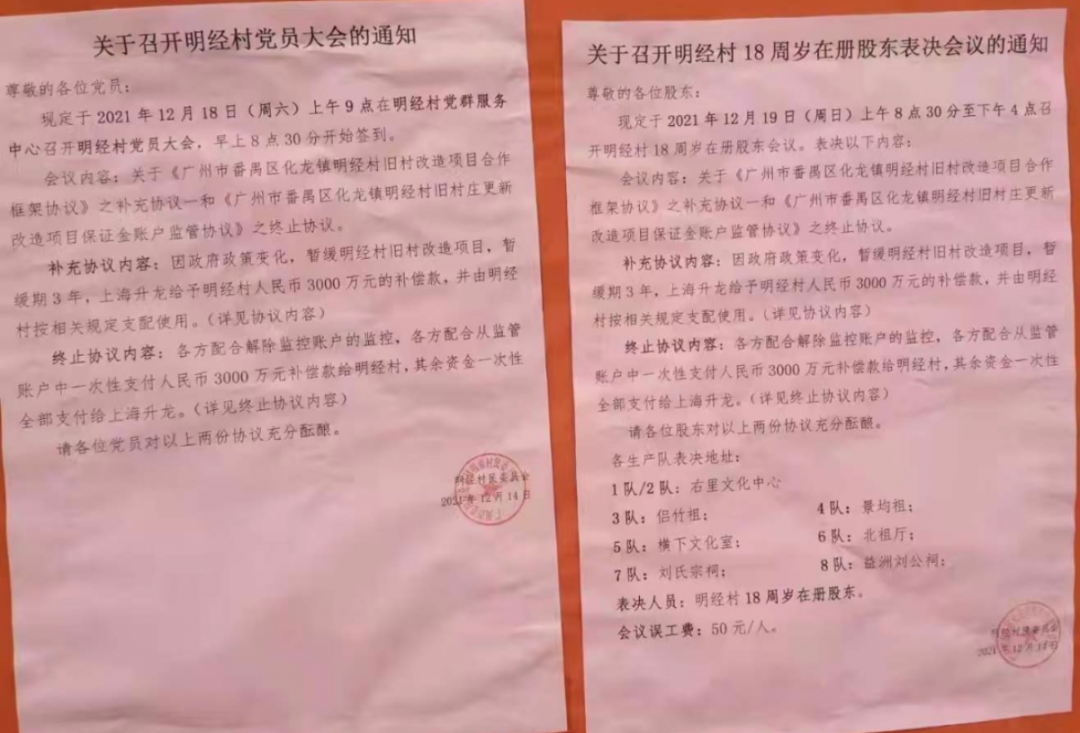 关于召开明经村党员大会的通知
尊敬的各位党员：
现定于 2021 年 12 月 18 日（周六）上午 9 点在明经村党群服务
中心召开明经村党员大会，早上 8 点 30 分开始签到。
会议内容：关于《广州市番禺区化龙镇明经村旧村改造项目合作
框架协议》之补充协议一和《广州市番禺区化龙镇明经村旧村庄更新
改造项目保证金账户监管协议》之终止协议。
补充协议内容：因政府政策变化，暂缓明经村旧村改造项目，暂
缓期 3 年，上海升龙给予明经村人民币 3000 万元的补偿款，并由明经
村按相关规定支配使用。（详见协议内容）
终止协议内容：各方配合解除监控账户的监控，各方配合从监管
账户中一次性支付人民币 3000 万元补偿款给明经村，其余资金一次性
全部支付给上海升龙。（详见终止协议内容）
请各位党员对以上两份协议充分酝酿。
明经村民委员会
2021 年 12 月 14 日
关于召开明经村 18 周岁在册股东表决会议的通知
尊敬的各位股东：
现定于 2021 年 12 月 19 日（周日）上午 8 点 30 分至下午 4 点召
开明经村 18 周岁在册股东会议。表决以下内容：
会议内容：关于《广州市番禺区化龙镇明经村旧村改造项目合作
框架协议》之补充协议一和《广州市番禺区化龙镇明经村旧村庄更新
改造项目保证金账户监管协议》之终止协议。
补充协议内容：因政府政策变化，暂缓明经村旧村改造项目，暂
缓期 3 年，上海升龙给予明经村人民币 3000 万元的补偿款，并由明经
村按相关规定支配使用。（详见协议内容）
终止协议内容：各方配合解除监控账户的监控，各方配合从监管
账户中一次性支付人民币 3000 万元补偿款给明经村，其余资金一次性
全部支付给上海升龙。（详见终止协议内容）
请各位股东对以上两份协议充分酝酿。
各生产队表决地址：
1 队/2 队：右里文化中心
3 队：侣竹祖； 4 队：景均祖；
5 队：横下文化室； 6 队：北祖厅；
7 队：刘氏宗祠； 8 队：益洲刘公祠；
表决人员：明经村 18 周岁在册股东。
会议误工费：50 元/人。
明经村民委员会
2021 年 12 月 14 日